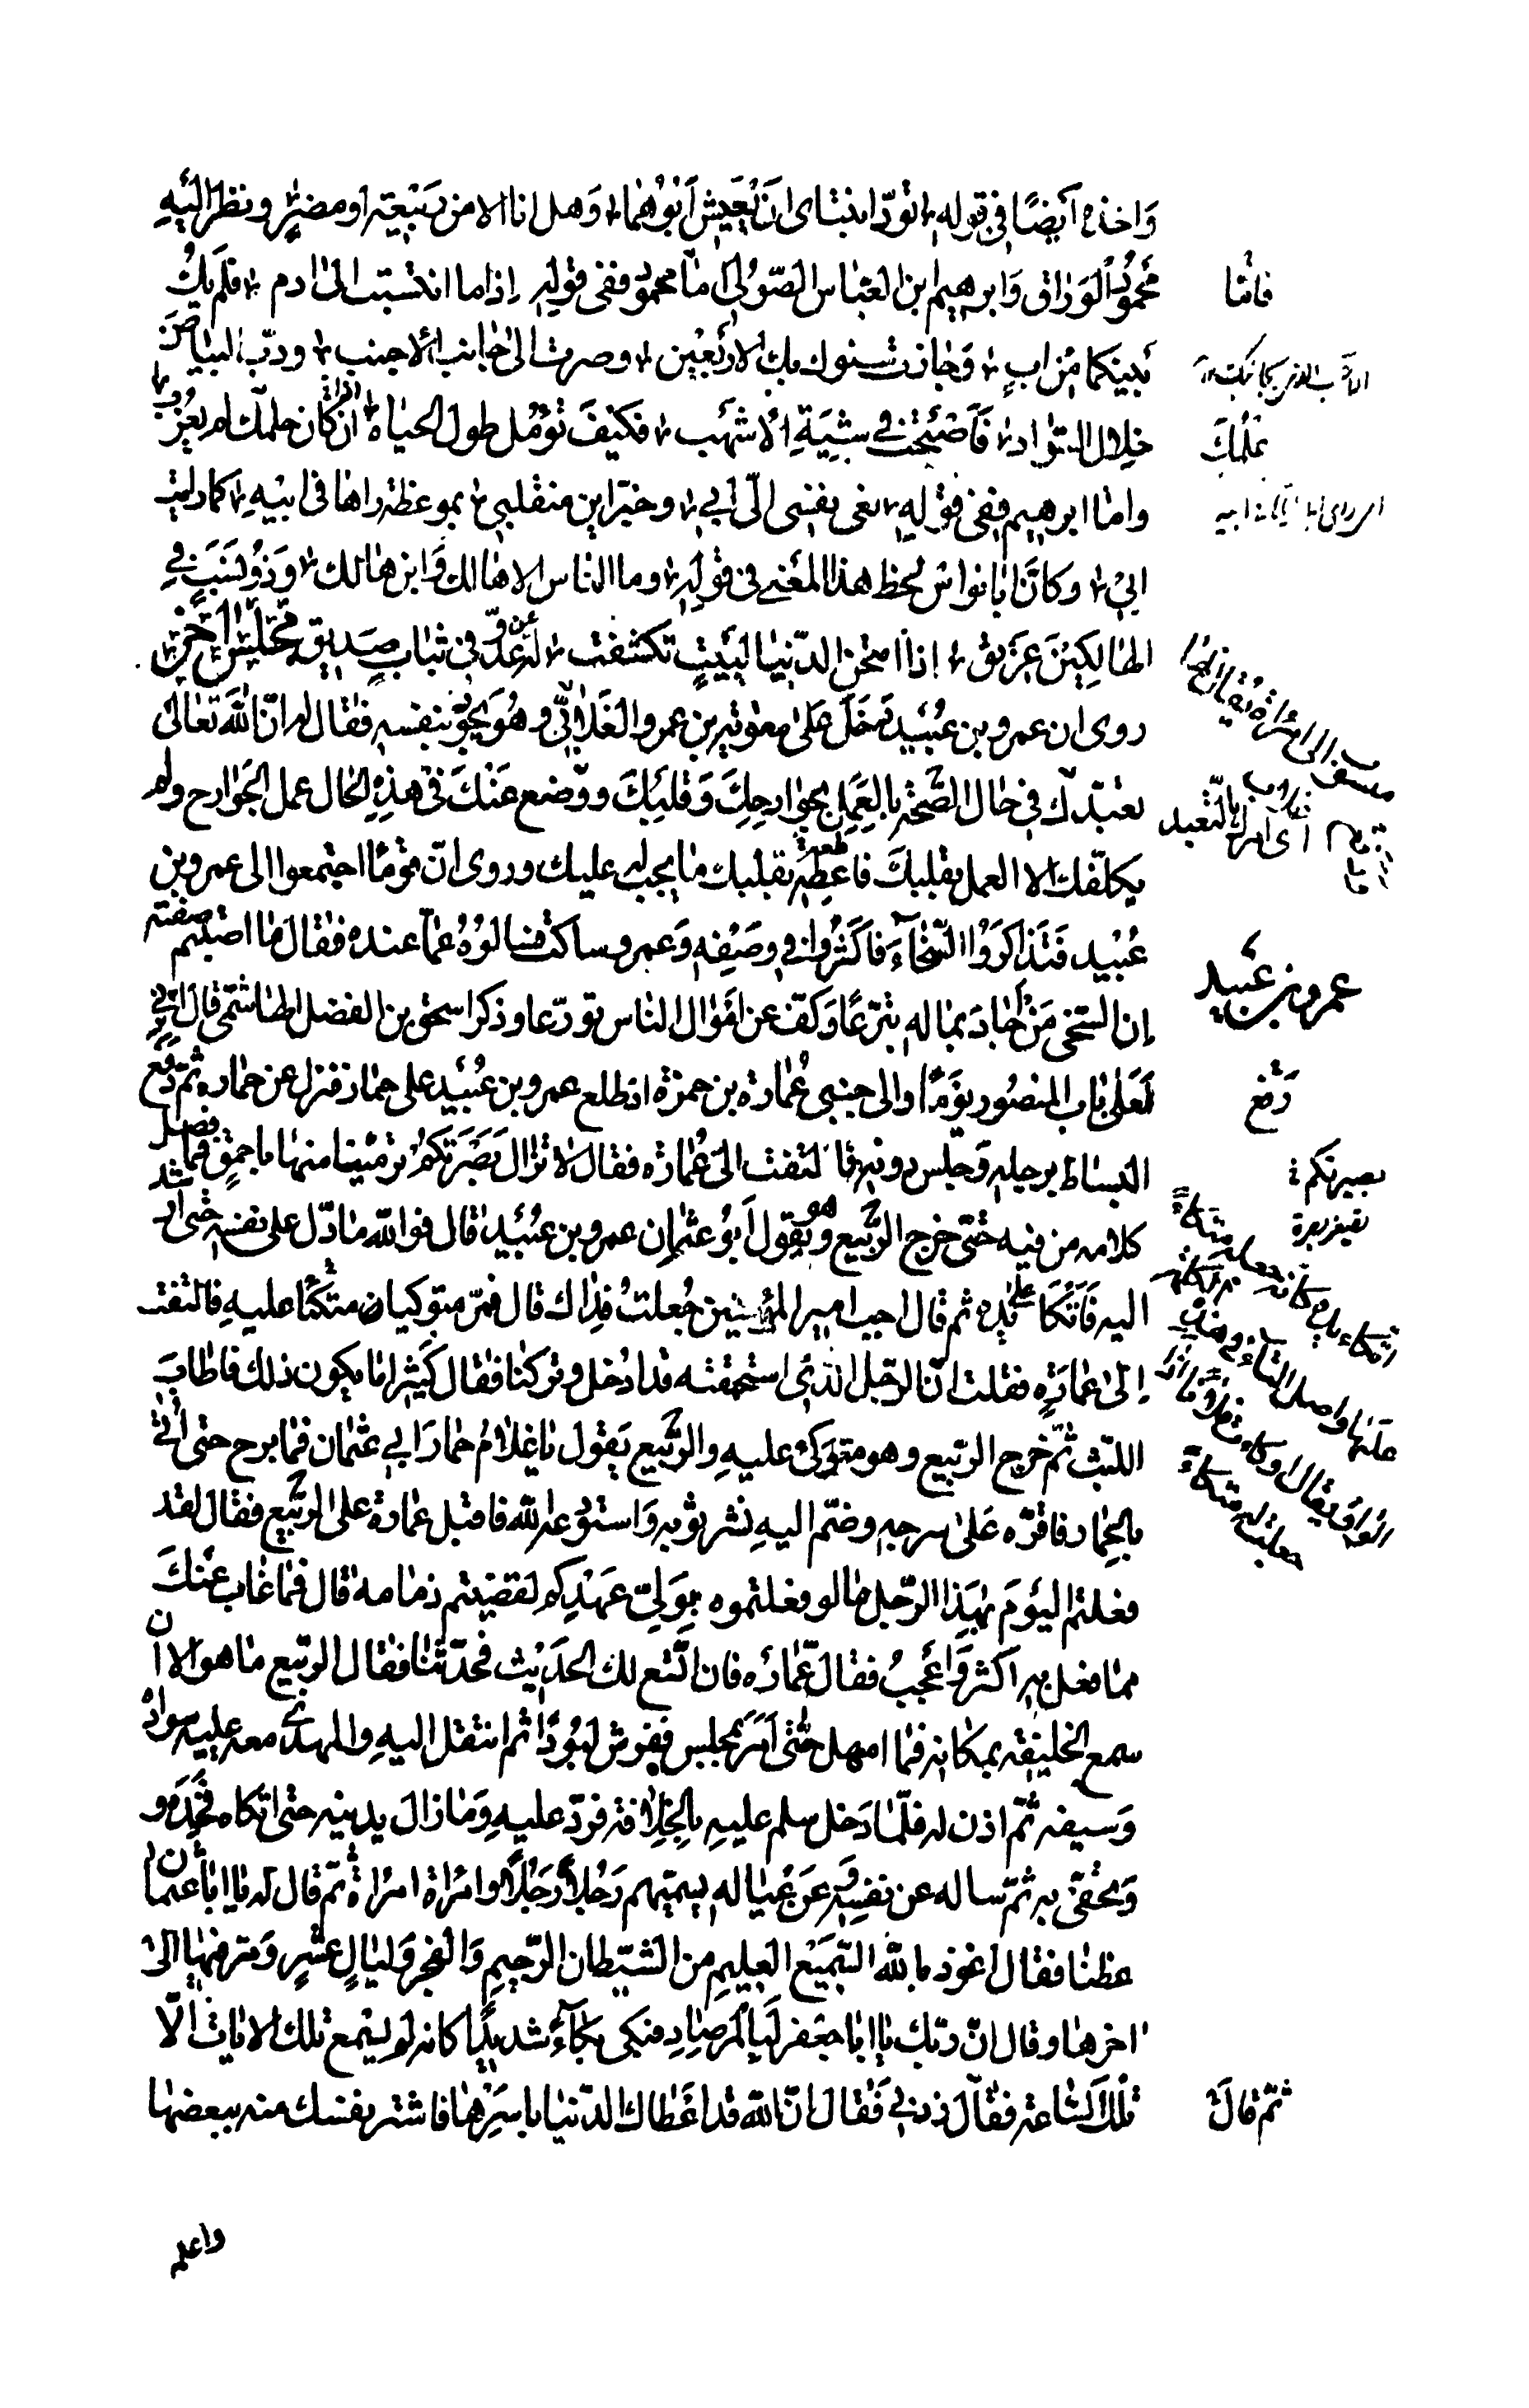 وَاخذه اَيضًا في قوله تودّ ابنتاى اَن يَعيش اَبوُهُما وَهل انا الا من رَبيعة او مضر ونظر اليَهِ
محَموُد الوَرّاق وَابرهيم ابن العبّاس الصّوُلى امّا محموُد ففى قولهِ إذا ما انتسَبت الىٰ ادم فلَم يكُ
بَينكما مِن ابٍ وَجازت سنوك بك الاربَعين وصرت الىٰ جانب الاجنب ودبّ البياض
خِلال السّواد فَاَصبَحت فى شِيَةِ الاشهَب فكيفَ تؤمّل طول الحياة اذا كان حلمك لم يعزُب
وامّا ابرهيم ففى قوله نعى نفسى الىّ ابى وخبّر اين منقلبى بموعظة راها فى ابيهِ كما رايت
ابى وكانّ ابا نواس لحظ هذا المعنى فى قولهِ وما الناس الا هالك وَابن هالك وَذوُ نسَبٍ فى
الهالِكِينَ عَرَيق اذا امتحن الدّنيا لبَيب تكشفت له عن عدوّ فى ثياب صَدِيق مجَلس اخر
روى ان عمرو بن عُبَيد دَخَل عَلىٰ معٰوية بن عمرو الغَلابىّ وهُوَ يجوُد بنفسهِ فقال له انّ اللّه تعالىٰ
تعبّدك فى حال الصّحّة بالعَمِل بجوٰارحِكَ وَقلبِكَ ووضع عَنكَ فى هذهِ الحٰال عمل الجوَارح ولم
يكلّفك الا العمل بقلبكَ فاعطِهِ بقلبك ما يجب له عليك وروى انّ قومًا اجتمعوا الى عمرو بن
عُبَيد فتَذاكَروُا السّخاءَ فاكثروُا فى وصَفهِ وَعمرو ساكت فسالوُهُ عمّا عنده فقال ما اصبتم صفته
إن السّخى مَن جادَ بماله تبرّعًا وَكفّ عن امَوال الناس تورّعا وذكر اسحٰق بن الفضل الهاشمى قال انى
لَعَلى باب المنصُور يوَمًا والى جنبى عُمارة بن حمزة اذ طلع عمرو بن عُبَيد على حمار فنزل عن حماره ثمّ دفع
البساط برجلهِ وَجلس دونه فالتفت الىّ عُمارة فقال لا تزال بَصرَتكمُ ترمينا منها باحمق فما فصل
كلامه من فيه حتّى خرج الرّبيع وهو يقول اَبوُ عثمان عمرو بن عُبَيد قال فوالله ما دلّ على نفسهِ حتى ارشد
اليه فَاَتكَاهُ يدِه ثم قال اجب امير المؤمنين جُعلتُ فِداك قال فمرّ متوكيا متّكئًا عليهِ فالتفت
الىٰ عُمارَةِ فقلت انّ الرّجل الذى استحمقته قد ادُخل وتركنا فقال كثيرا ما يكون ذلك فاطال
اللبث ثمّ خرج الربيع وهو متوكئ عليهِ والرّبيع يقول يا غلامُ حمار ابى عثمان فما برح حتى اتى
بالحِمار فاقرّه عَلىٰ سرجهِ وضمّ اليهِ نشر ثوبهِ وَاستودعه اللّه فاقبل عمارة على الرّبيع فقال لقد
فعلتم اليوَمَ بهٰذا الرّجل ما لو فعلتموه بوَلىّ عَهدِكم لقضيتم ذمامه قال فما غاب عَنكَ
ممّا فعل بهِ اكثر وَاَعجبُ فقال عُمارة فان اتّسع لك الحدَيث فحدّثنا فقال الربّيع ما هو الا ان
سمع الخليفة بمكانهِ فما امهل حتّى اَمَر بمجلس ففرش لبُودًا ثم انتقل اليهِ والمهدىّ معه عليهِ سوادهُ
وَسيفه ثمّ اذن له فلمّا دَخل سلم عليهِ بالخلافة فردّ عليهِ وَما زال يدنيه حتى اتكاه فخَذه
وَتحفّى به ثمّ ساله عن نفسِه وَعَن عِياله يسمّيهم رَجُلاً رَجُلاً وامراة امراة ثمّ قال له يا ابا عثمان
عظنا فقال اعَوذ باللّه السّميَع العليم من الشيّطان الرّجيم وَالفجرِ وَليالٍ عَشرٍ ومر فيها الىٰ
اخرها وقال انّ ربّك يا ابا جعفر لَبالمرصِاد فبكى بكاءً شديدًا كانه لم يسَمع تلك الايات الّا
تلكَ السّاعة فقال زدنى فقال انّ اللّه قد اعَطاك الدّنيا باسَرها فاشتر نفسك منه ببعضها
فامّا
حلمك
اى امرك بالتعبد
عمرو بن عبُيد
رَفعَ
بصيرتكم
ثمّ قالَ
واعلم